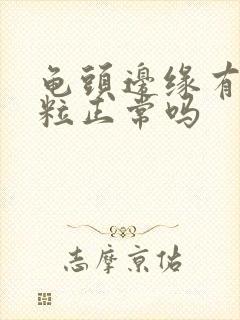 龟頭邊缘有
粒正常吗
志摩京佑